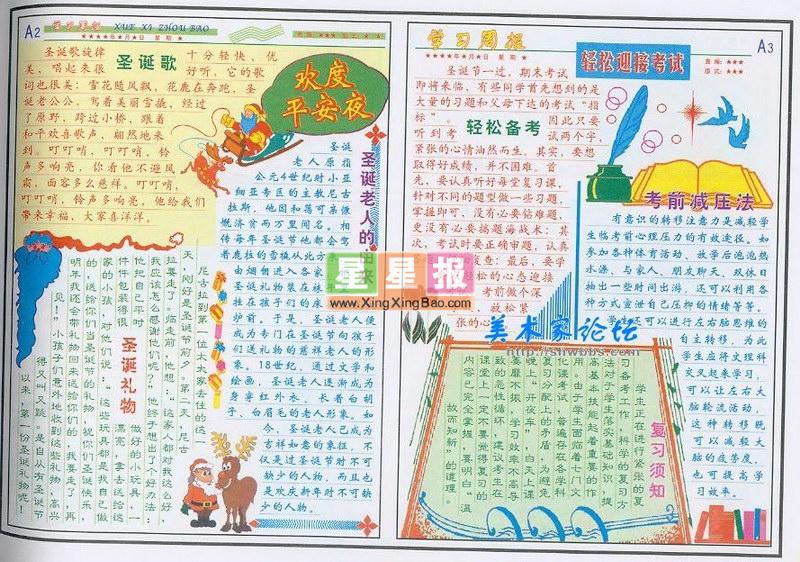 A2
XUE XI ZHOU BAO
★★★★年★月★日 星期★
圣诞歌
圣诞歌旋律
十分轻快、优
美，唱起来很
好听，它的歌
词也很美：雪花随风飘，花鹿在奔跑，圣
诞老公公，驾着美丽雪撬，经过
了原野，跨过小桥，跟着
和平欢喜歌声，翩然地来
到。叮叮哨，叮叮哨，铃
声多响亮，你看他不避风
霜，面容多么慈祥。叮叮哨，
叮叮哨，铃声多响亮，他给我们
带来幸福，大家喜洋洋。
欢度
平安夜
圣诞老人的由来
圣诞
老人原指
公元4世纪时小亚
细亚专区的主教尼古
拉斯，他因和蔼可亲慷
慨济贫而万里闻名。相
传每年圣诞节他都会驾
着鹿拉的雪橇从北方
由烟囱进入各家
圣诞礼物装在袜
挂在孩子们的床
护前。于是，圣诞老人便
成为专门在圣诞节向孩子
们送礼物的慈祥老人的形
象。18世纪，通过文学和
绘画，圣诞老人逐渐成为
身穿红外衣、长着白胡
子、白眉毛的老人形象。如
今，圣诞老人已成为
吉祥如意的象征，不
仅是过圣诞节时不可
缺少的人物，而且也
是欢庆新年时不可缺
少的人物。
圣诞礼物
尼古拉到第一位太太家去住的这一
天，刚好是圣诞节前夕。第二天，尼古
拉要走了，临走前，他想：“这家人都对我这么好，
我应该怎么感谢他们呢？”他终于想出了个好办法：
他把自己平时
做好的小玩具，一
件件包装得很
漂亮，拿去送给这
家的小孩，对他们说：“这些玩具都是我自己做
的，送给你们当圣诞节的礼物，祝你们圣诞快乐，
明年我还会带礼物回来送给你们的，我要走了，再
见！”小孩子们意外地收到这些礼物，高兴
得又叫又跳。是自从有圣诞节
以来，第一份圣诞礼物呢！
学习周报
★★★★年★月★日 星期★
A3
责编：★★★
版式：★★★
轻松迎接考试
轻松备考
圣诞节一过，期末考试
即将来临，有些同学首先想到的是
大量的习题和父母下达的考试“指
标”。
因此只要
听到考
试两个字，
紧张的心情油然而生。其实，要想
取得好成绩，并不困难。首
先，要认真听好每堂复习课，
针对不同的题型做一些习题，
掌握即可，没有必要钻难题，
更没有必要搞题海战术：其
次，考试时要正确审题，认真
复查：最后，要学
轻松的心态迎接
考前做个深
放松紧
张的心
考前减压法
有意识的转移注意力是减轻学
生临考前心理压力的有效途径。如
参加各种体育活动，放学后泡泡热
水澡、与家人、朋友聊天，双休日
抽出一些时间出游，还可以利用各
种方式宣泄自己压抑的情绪等等。
学生还可以进行左右脑思维的
自主转移，为此
学生应将文理科
交叉起来学习，
可以让左右大
脑轮流活动，
这种转移既
可以减轻大
脑的疲劳度，
也可提高学
习效率。
复习须知
学生正在进行紧张的复
习备考工作，科学的复习方
法对于学生落实基础知识，提
高基本技能起着重要的作
用。由于学生面临着七门文
化课的考试，普遍存在各学科
复习分配上的矛盾，为避免
晚上“开夜车”白天上课
要磨不振，学习效率不高导
致的恶性循环，建议考生在
课堂上一定不要觉得复习的
内容已完全掌握，要明白“温
故而知新”的道理。
星星报
www.XingXingBao.com
美术家论坛
http://shwbbs.com